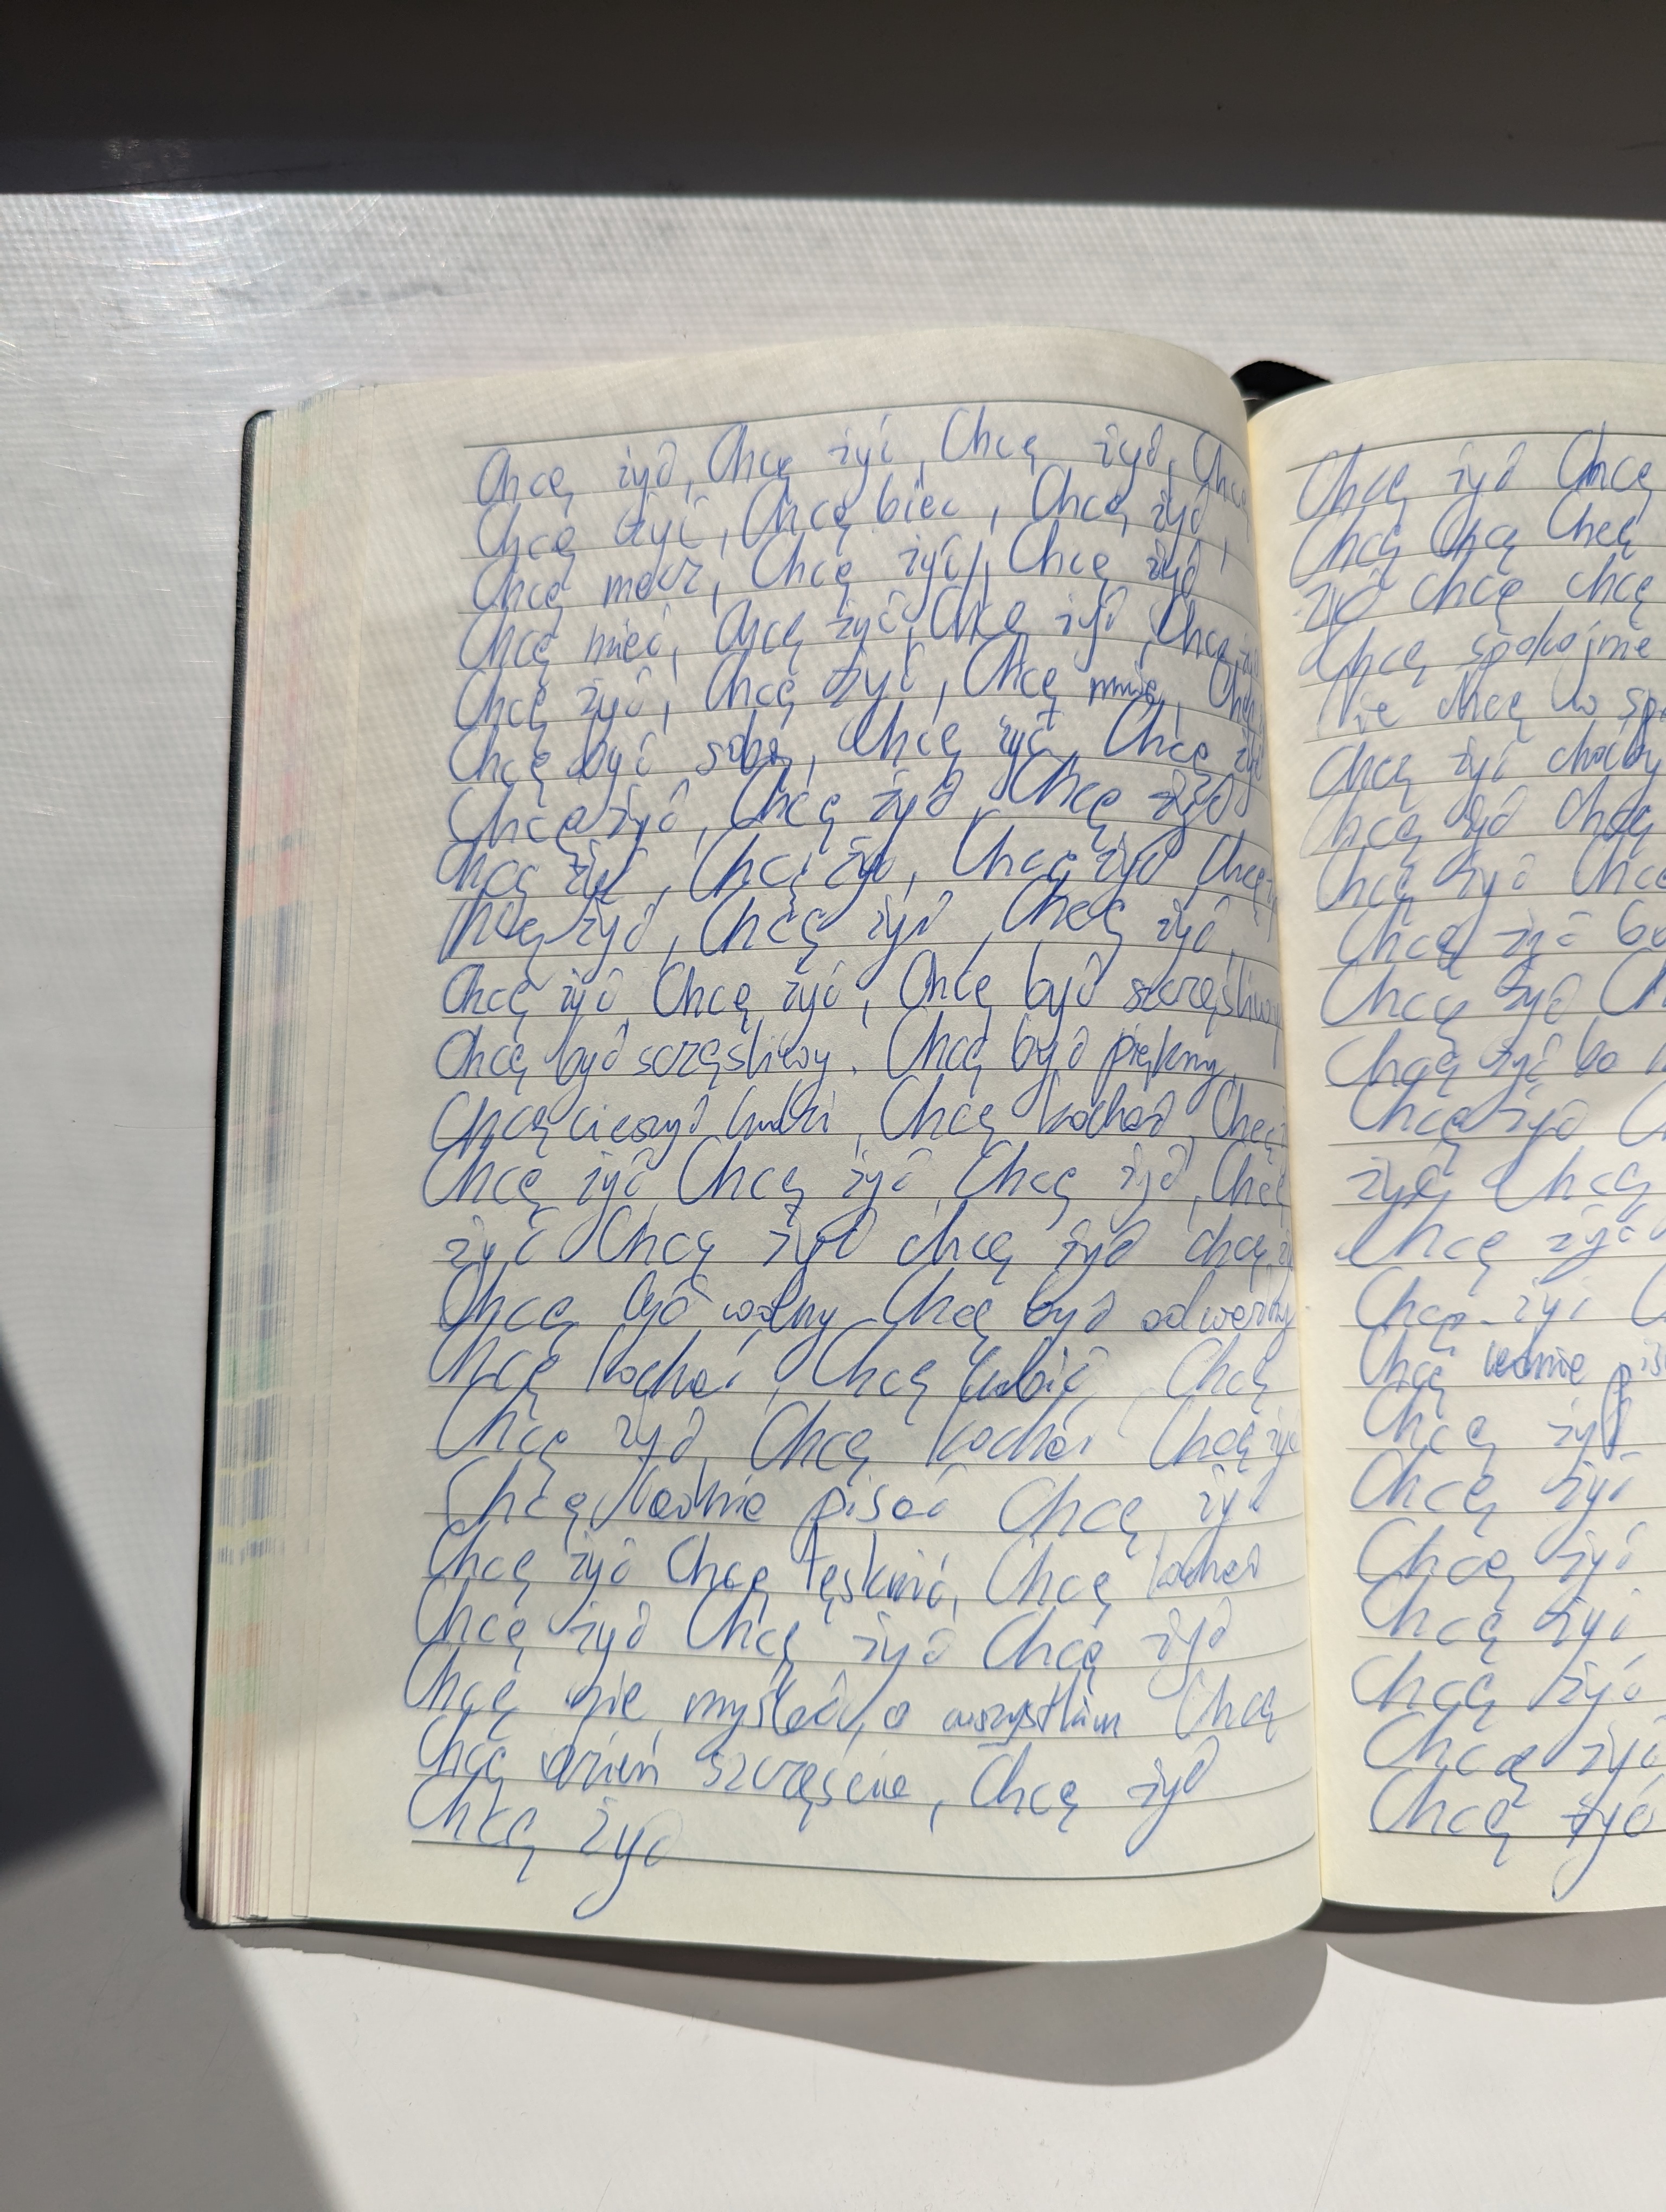 Chcę żyć, Chcę żyć, Chcę żyć, Chcę
Chcę żyć, Chcę biec, Chcę żyć,
Chcę, Chcę żyć, Chcę żyć
Chcę mieć, Chcę żyć, Chcę żyć, Chcę żyć
Chcę żyć, Chcę żyć, Chcę mnie, Chcę
Chcę być sobą, Chcę żyć, Chcę żyć
Chcę żyć, Chcę żyć, Chcę żyć
Chcę żyć, Chcę żyć, Chcę żyć Chcę
Chcę żyć, Chcę żyć, Chcę żyć,
Chcę żyć, Chcę żyć, Chcę być szczęśliwy
Chcę być szczęśliwy. Chcę być piękny,
Chcę cieszyć ludzi, Chcę kochać, Chcę
Chcę żyć, Chcę żyć, Chcę żyć, Chcę
żyć Chcę żyć chcę żyć chcę
Chcę być wolny Chcę być odważny
Chcę kochać, Chcę lubić, Chcę
Chcę żyć, Chcę kochać Chcę żyć
Chcę ładnie pisać Chcę żyć
Chcę żyć Chcę tęsknić, Chcę kochać
Chcę żyć Chcę żyć Chcę żyć
Chcę nie myśleć o wszystkim Chcę
Chcę dzień szczęście, Chcę żyć
Chcę żyć
Chcę żyć Chcę
Chcę Chcę Chcę
żyć chcę chcę
Chcę spokojnie
Nie chcę w
Chcę żyć choćby
Chcę żyć Chcę
Chcę żyć Chcę
Chcę żyć
Chcę żyć
Chcę żyć bo
Chcę żyć
żyć Chcę
Chcę żyć
Chcę żyć
Chcę ładnie
Chcę żyć
Chcę żyć
Chcę żyć
Chcę żyć
Chcę żyć
Chcę żyć
Chcę żyć